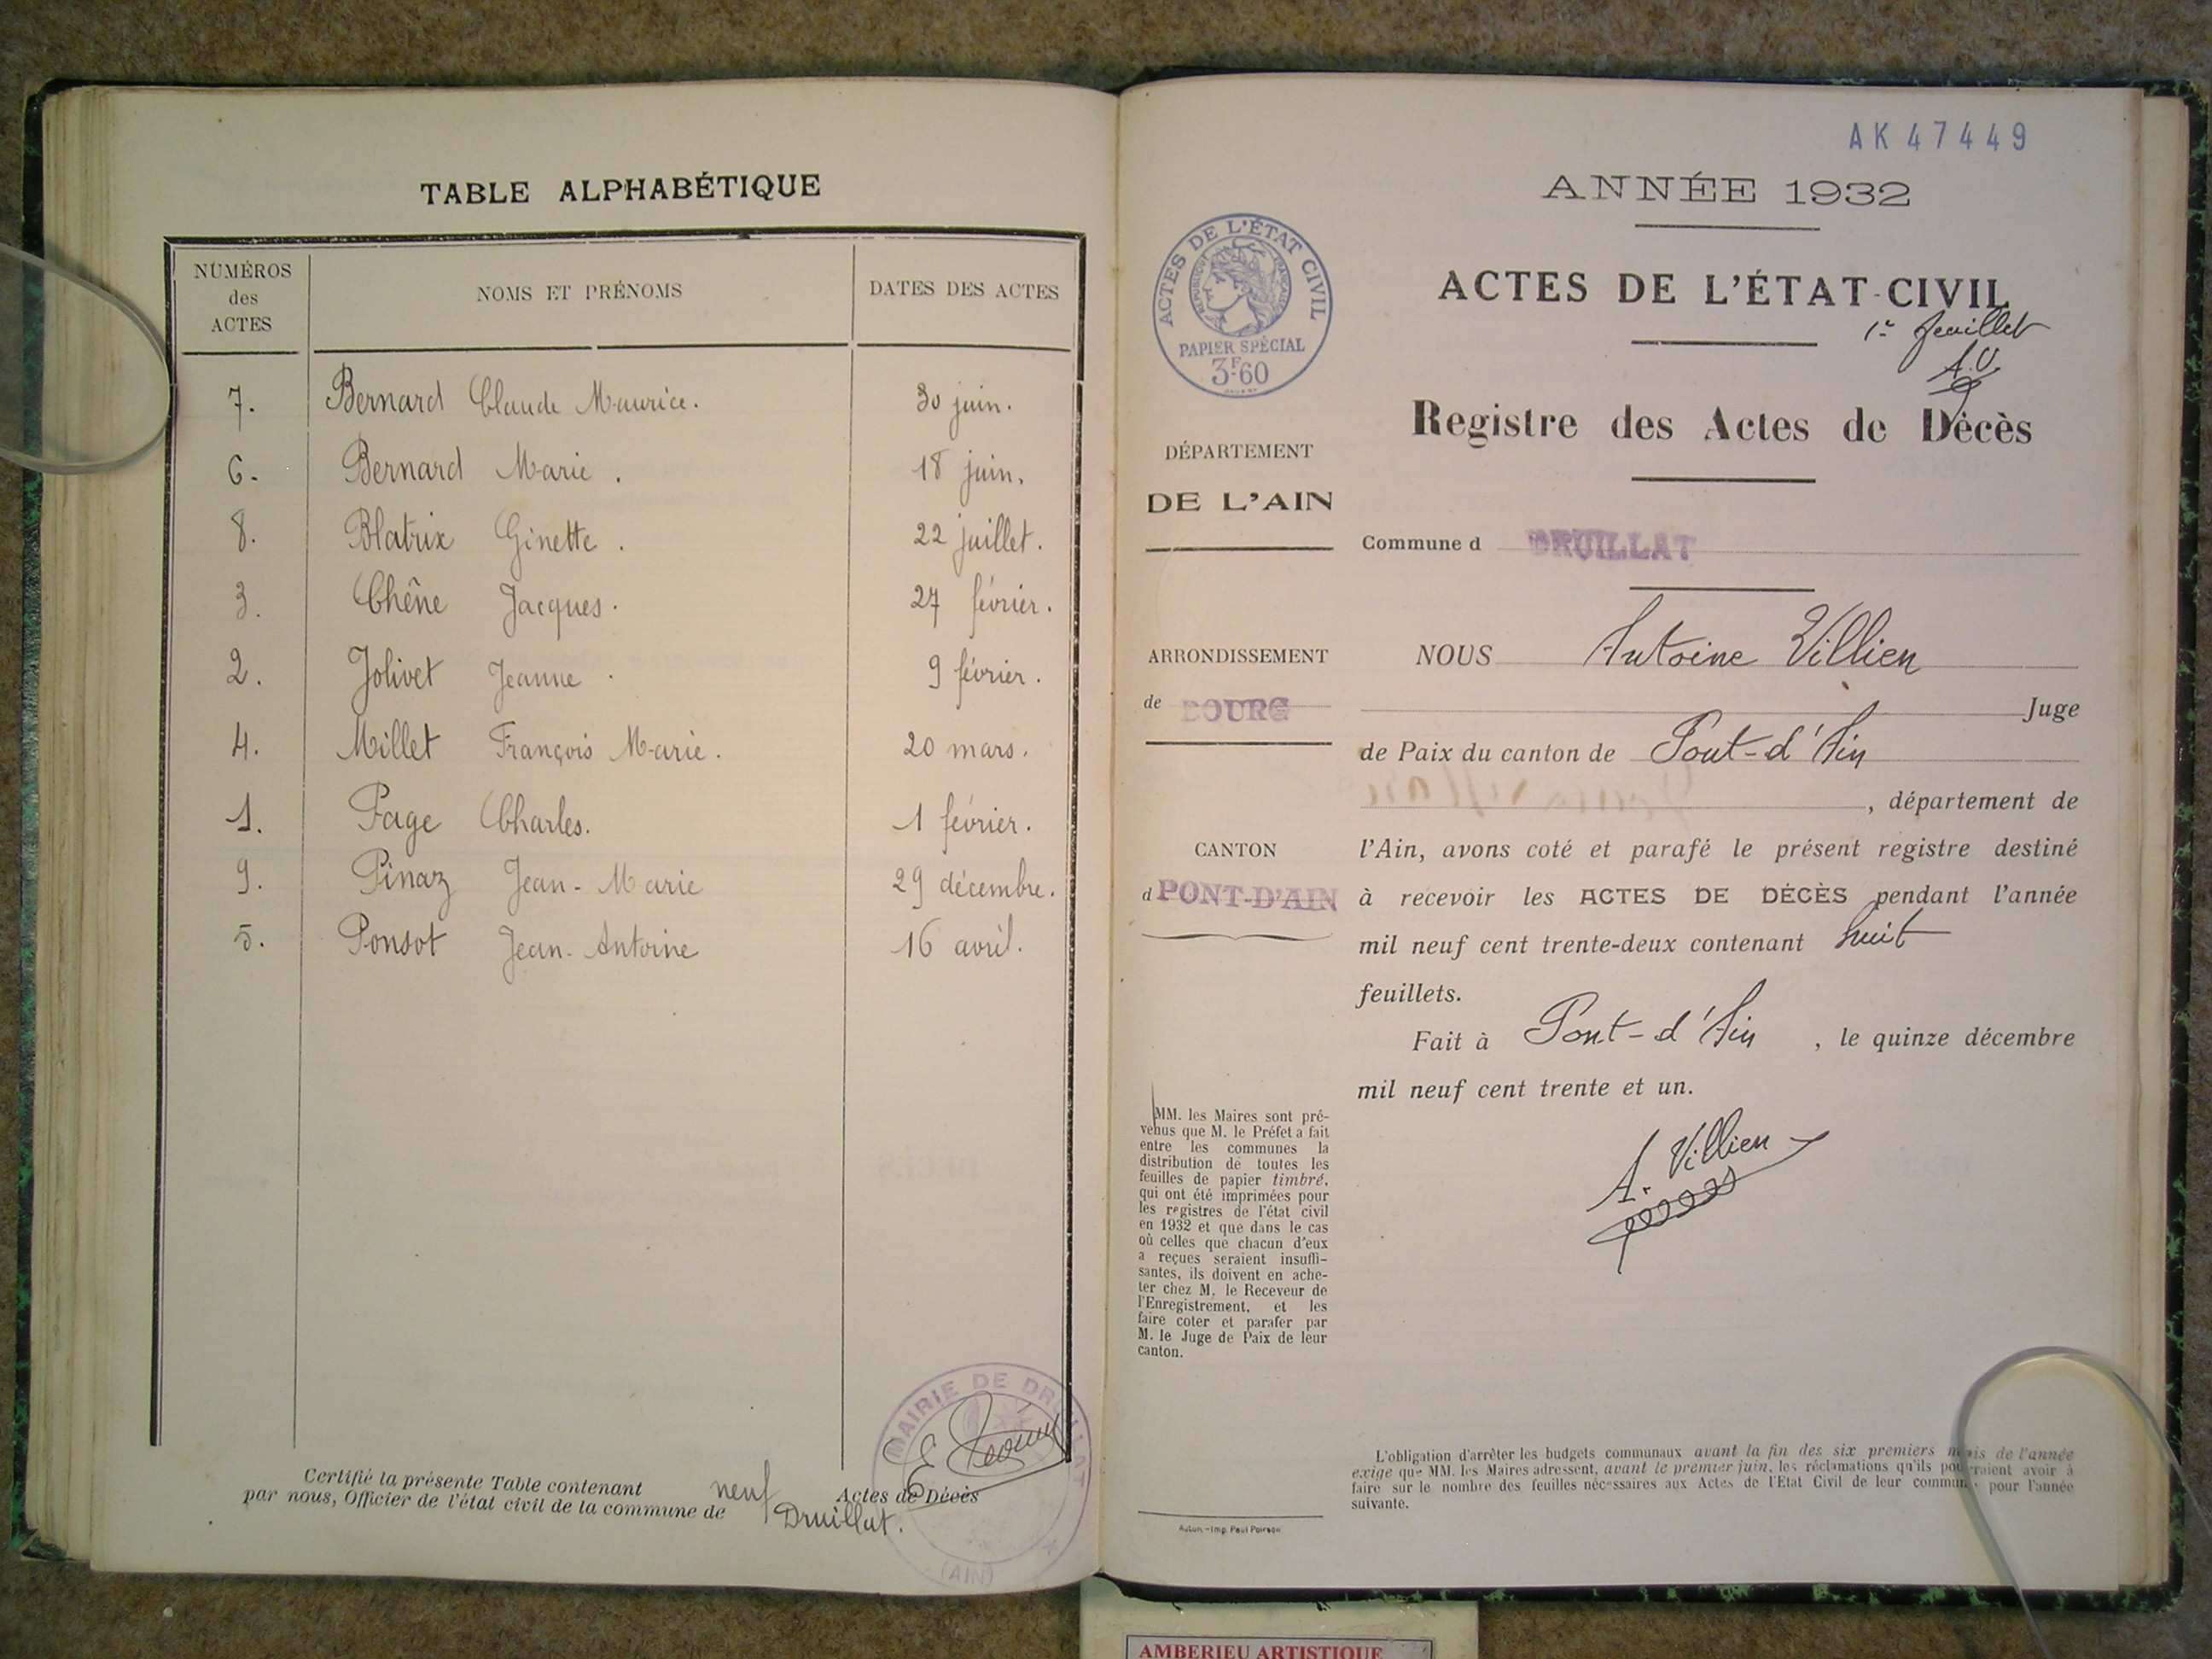 TABLE ALPHABÉTIQUE
NUMÉROS des ACTES NOMS ET PRÉNOMS DATES DES ACTES
7. Bernard Claude Maurice. 30 juin.
6. Bernard Marie. 18 juin.
8. Blatrix Ginette. 22 juillet.
3. Chêne Jacques. 27 février.
2. Jolivet Jeanne. 9 février.
4. Millet François Marie. 20 mars.
1. Page Charles. 1 février.
9. Pinaz Jean-Marie 29 décembre.
5. Ponsot Jean-Antoine 16 avril.
Certifié la présente Table contenant neuf Actes de Décès
par nous, Officier de l'état civil de la commune de Druillat.
MAIRIE DE DRUILLAT
(AIN)
AK 47449
ANNÉE 1932
ACTES DE L'ÉTAT-CIVIL
1er feuillet
A.V.
Registre des Actes de Décès
ACTES DE L'ÉTAT CIVIL
RÉPUBLIQUE FRANÇAISE
PAPIER SPÉCIAL
3F60
DÉPARTEMENT
DE L'AIN
Commune d DRUILLAT
ARRONDISSEMENT
de BOURG
CANTON
d PONT-D'AIN
NOUS Antoine Villien
Juge
de Paix du canton de Pont-d'Ain
, département de
l'Ain, avons coté et parafé le présent registre destiné
à recevoir les ACTES DE DÉCÈS pendant l'année
mil neuf cent trente-deux contenant huit
feuillets.
Fait à Pont-d'Ain , le quinze décembre
mil neuf cent trente et un.
A. Villien
MM. les Maires sont pré-
venus que M. le Préfet a fait
entre les communes la
distribution de toutes les
feuilles de papier timbré,
qui ont été imprimées pour
les registres de l'état civil
en 1932 et que dans le cas
où celles que chacun d'eux
a reçues seraient insuffi-
santes, ils doivent en ache-
ter chez M. le Receveur de
l'Enregistrement, et les
faire coter et parafer par
M. le Juge de Paix de leur
canton.
Autun.-Imp. Paul Poirson
L'obligation d'arrêter les budgets communaux avant la fin des six premiers mois de l'année
exige que MM. les Maires adressent, avant le premier juin, les réclamations qu'ils pourraient avoir à
faire sur le nombre des feuilles nécessaires aux Actes de l'Etat Civil de leur commune pour l'année
suivante.
AMBERIEU ARTISTIQUE